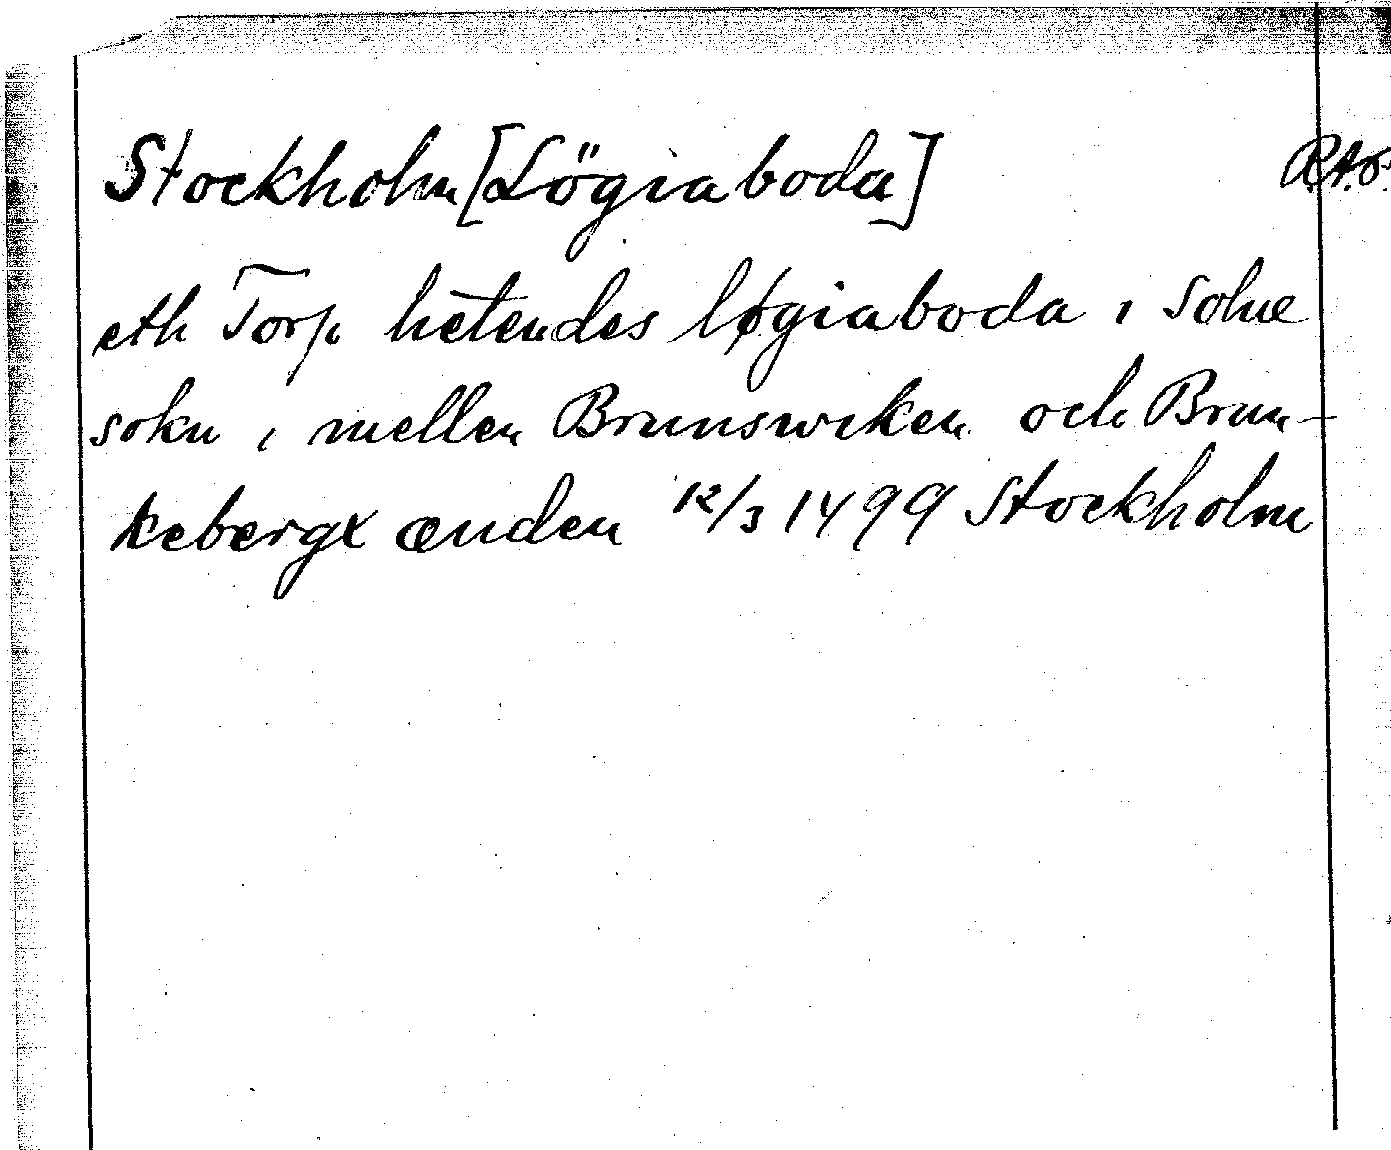 Stockholm [Lögiaboda] R.A.O.
eth Torp hetendes løgiaboda i Solne
sokn i mellen Brunswiken och Brun-
kebergx ænden 12/3 1499 Stockholm